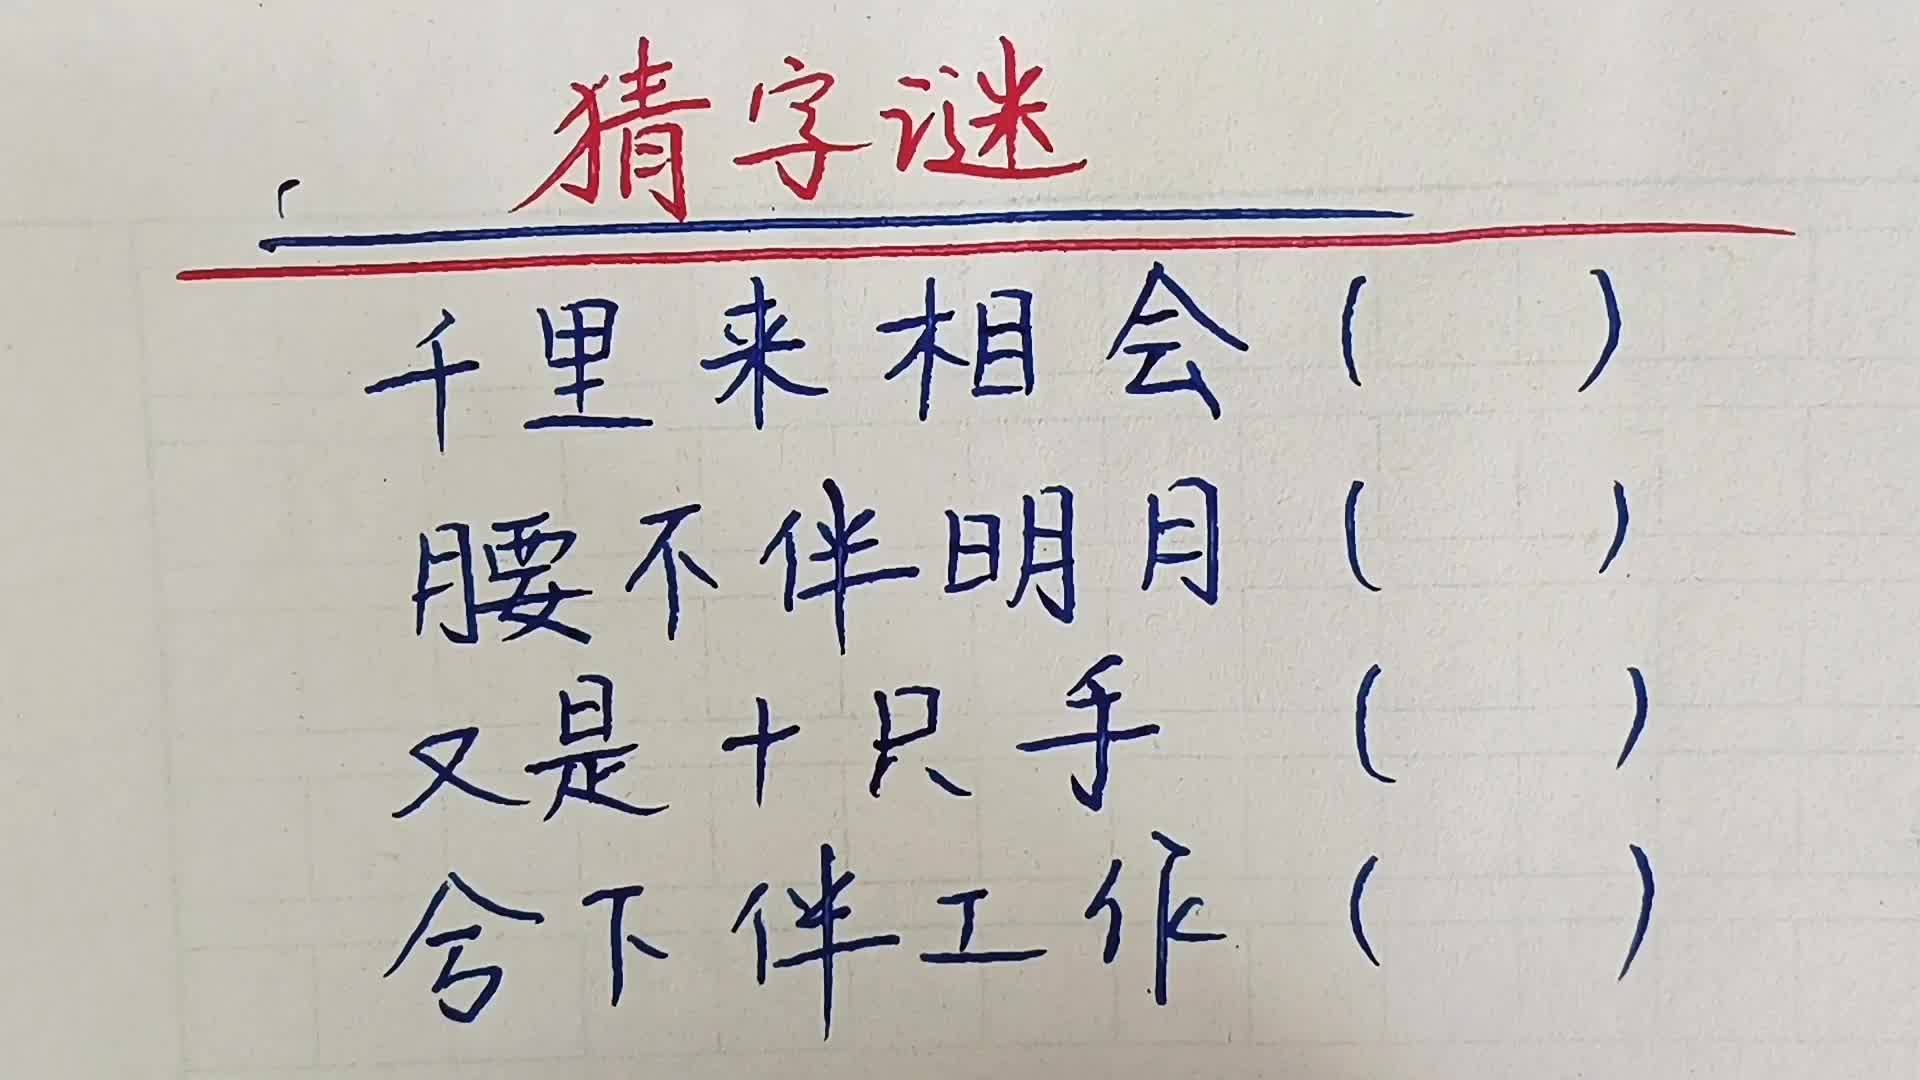 猜字谜
千里来相会( )
腰不伴明月( )
又是十只手( )
兮下伴工作( )